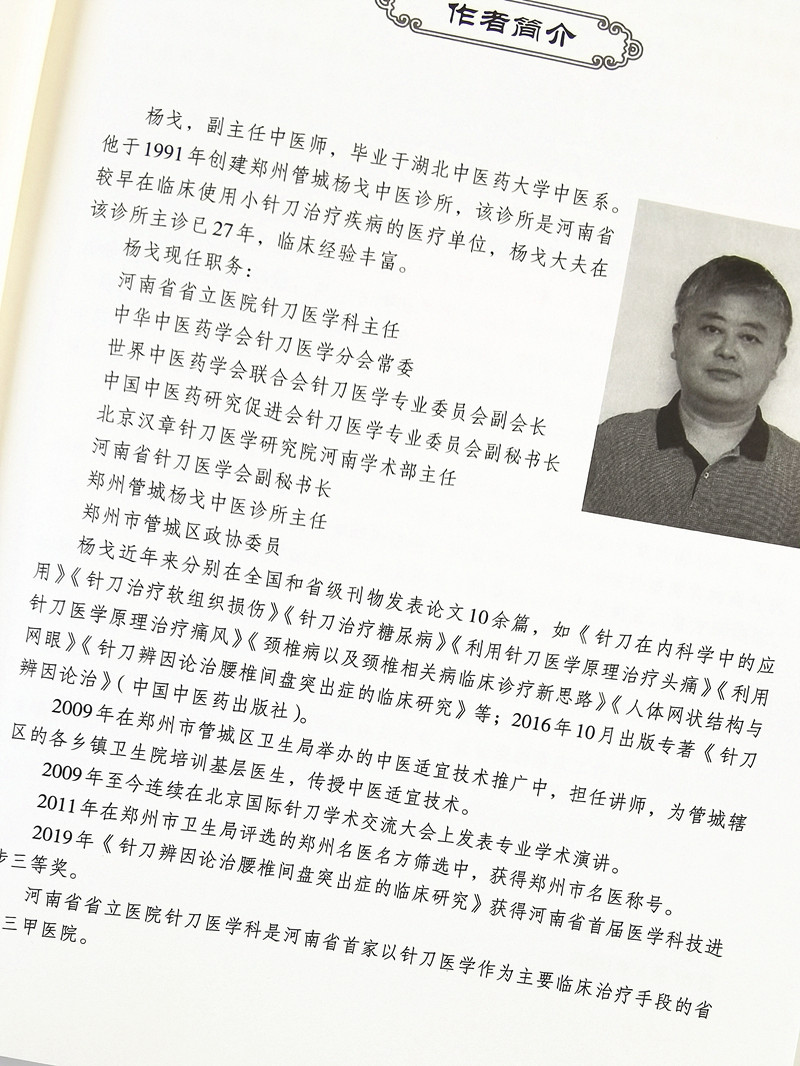 作者简介
杨戈，副主任中医师，毕业于湖北中医药大学中医系。
他于1991年创建郑州管城杨戈中医诊所，该诊所是河南省
较早在临床使用小针刀治疗疾病的医疗单位，杨戈大夫在
该诊所主诊已27年，临床经验丰富。
杨戈现任职务：
河南省省立医院针刀医学科主任
中华中医药学会针刀医学分会常委
世界中医药学会联合会针刀医学专业委员会副会长
中国中医药研究促进会针刀医学专业委员会副秘书长
北京汉章针刀医学研究院河南学术部主任
河南省针刀医学会副秘书长
郑州管城杨戈中医诊所主任
郑州市管城区政协委员
杨戈近年来分别在全国和省级刊物发表论文10余篇，如《针刀在内科学中的应
用》《针刀治疗软组织损伤》《针刀治疗糖尿病》《利用针刀医学原理治疗头痛》《利用
针刀医学原理治疗痛风》《颈椎病以及颈椎相关病临床诊疗新思路》《人体网状结构与
网眼》《针刀辨因论治腰椎间盘突出症的临床研究》等；2016年10月出版专著《针刀
辨因论治》（中国中医药出版社）。
2009年在郑州市管城区卫生局举办的中医适宜技术推广中，担任讲师，为管城辖
区的各乡镇卫生院培训基层医生，传授中医适宜技术。
2009年至今连续在北京国际针刀学术交流大会上发表专业学术演讲。
2011年在郑州市卫生局评选的郑州名医名方筛选中，获得郑州市名医称号。
2019年《针刀辨因论治腰椎间盘突出症的临床研究》获得河南省首届医学科技进
步三等奖。
河南省省立医院针刀医学科是河南省首家以针刀医学作为主要临床治疗手段的省
三甲医院。